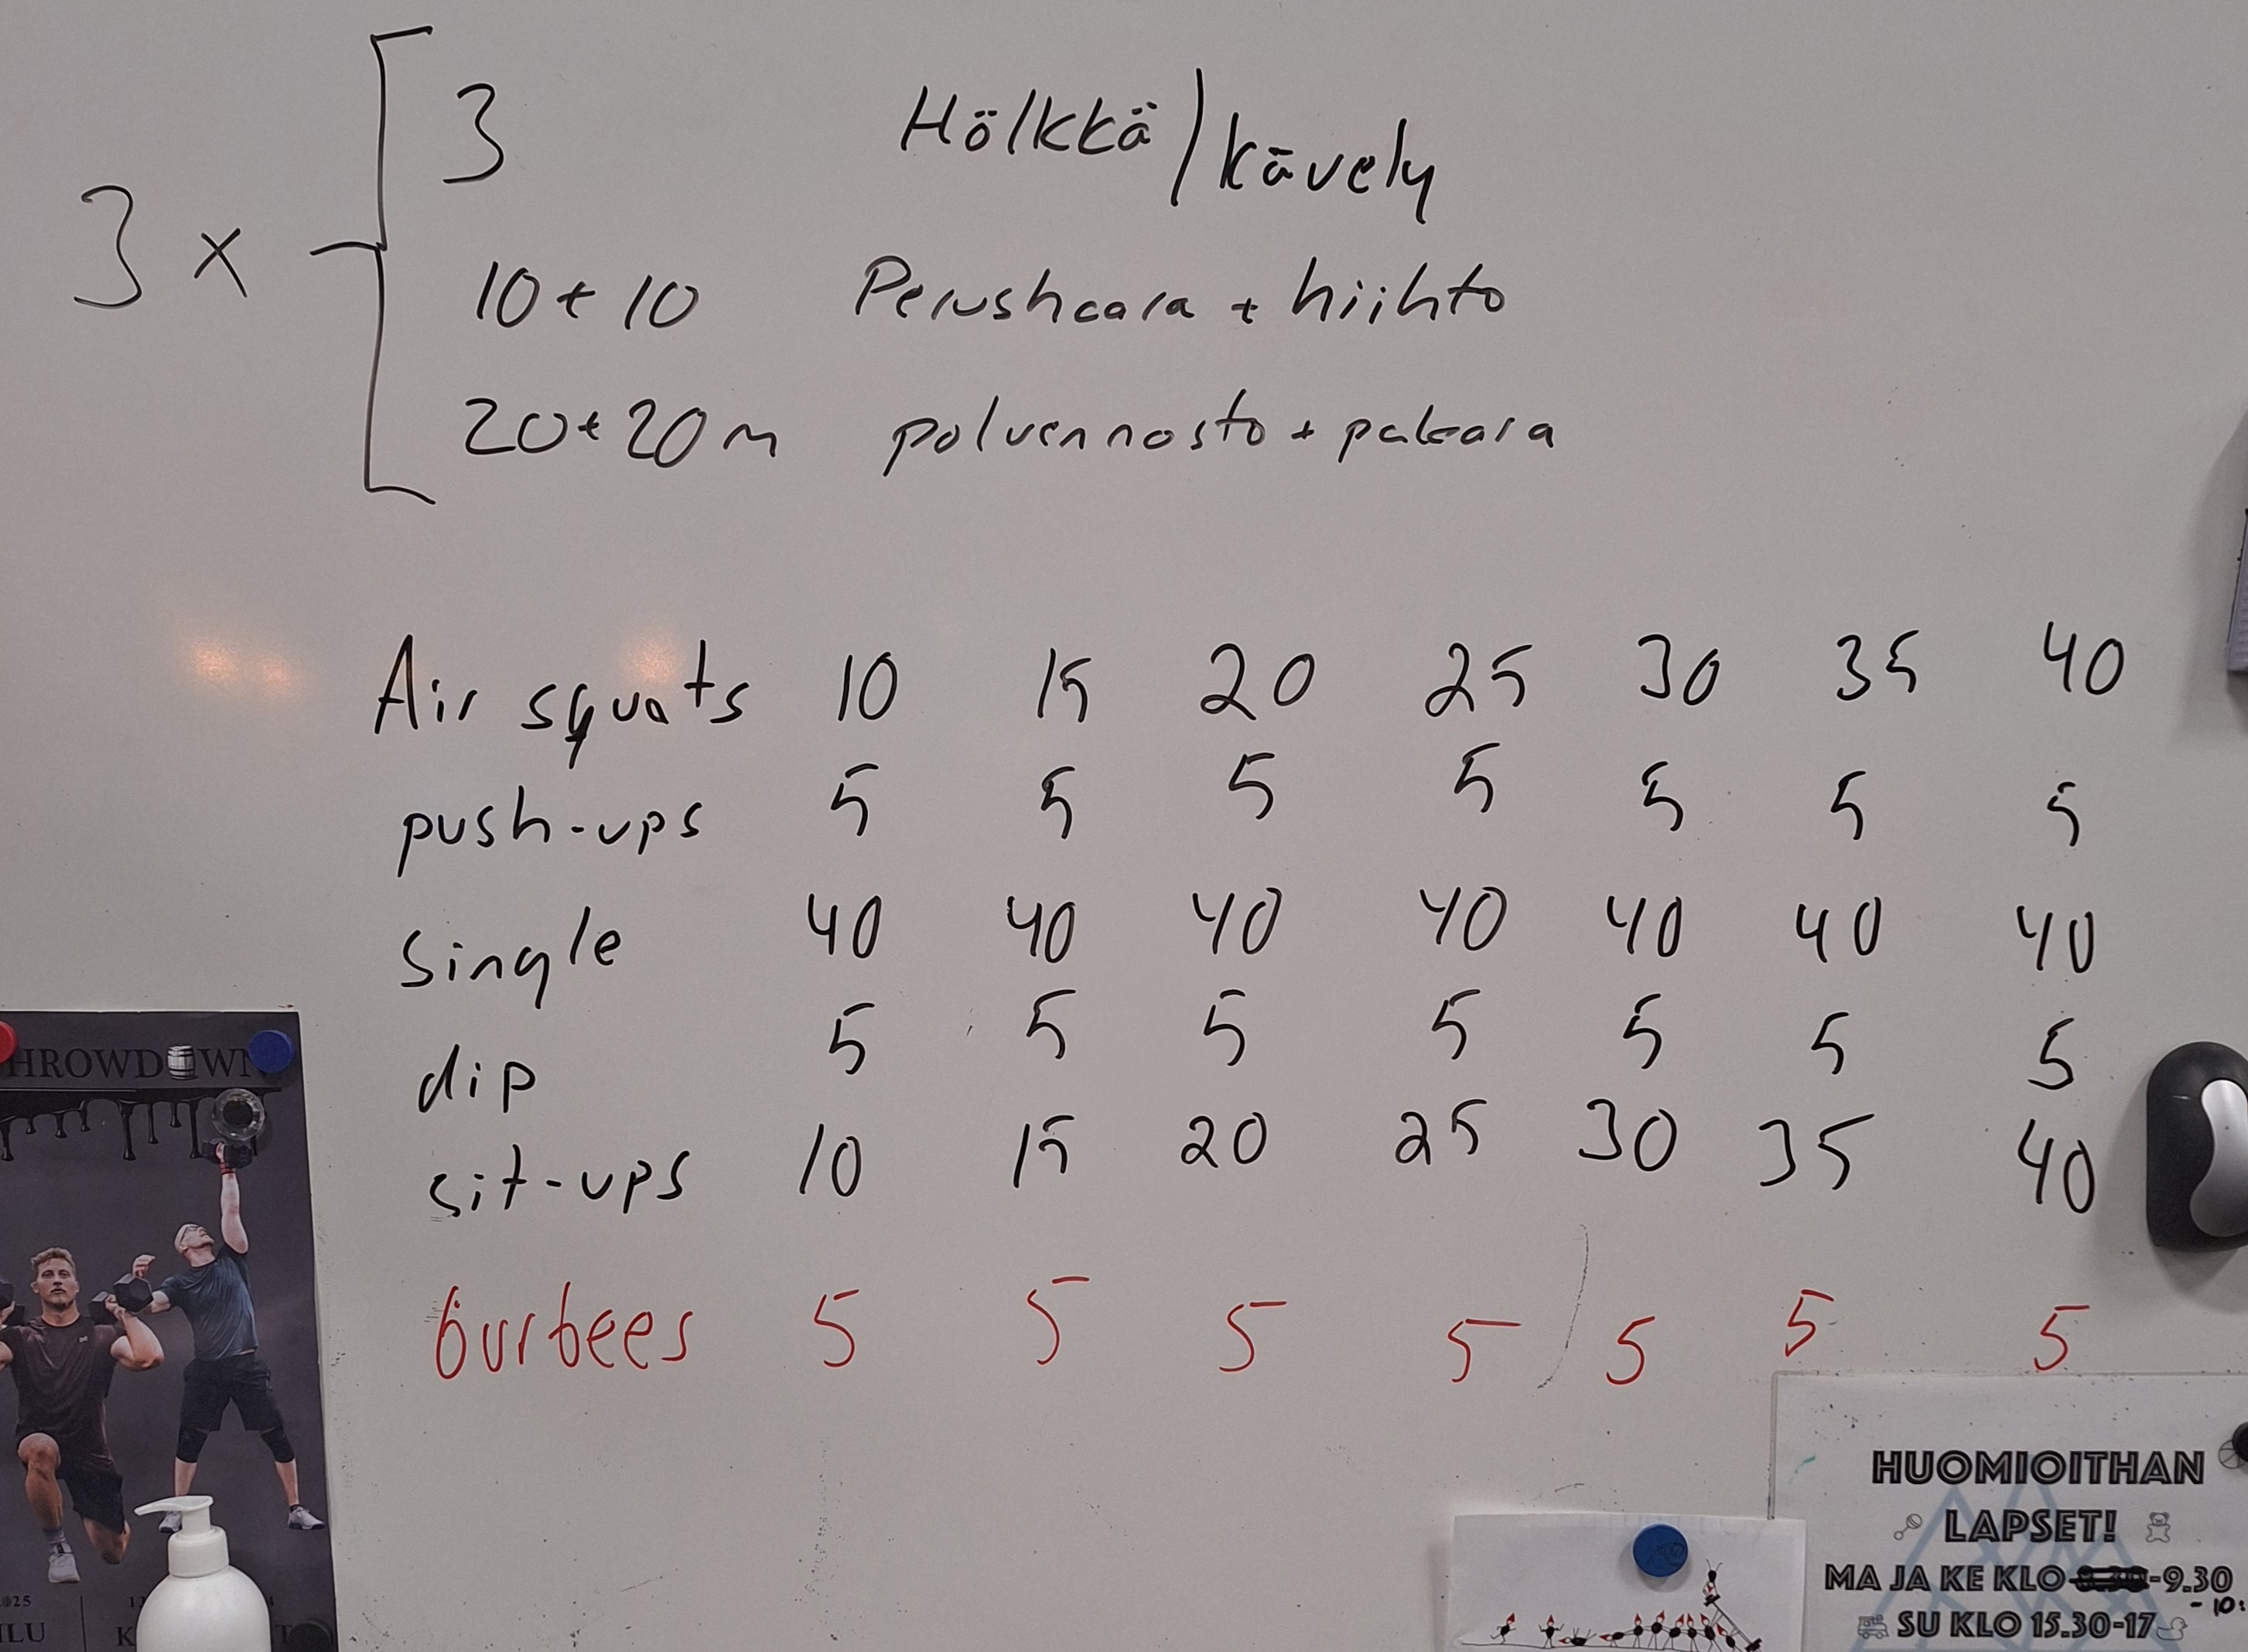 3 x
3 Hölkkä/kävely
10+10 Perushaara + hiihto
20+20m polvennosto + pakara
Air squats 10 15 20 25 30 35 40
push-ups 5 5 5 5 5 5 5
single 40 40 40 40 40 40 40
dip 5 5 5 5 5 5 5
sit-ups 10 15 20 25 30 35 40
burbees 5 5 5 5 5 5 5
HROWDOWN
HUOMIOITHAN
LAPSET!
MA JA KE KLO -9.30
- 10:
SU KLO 15.30-17